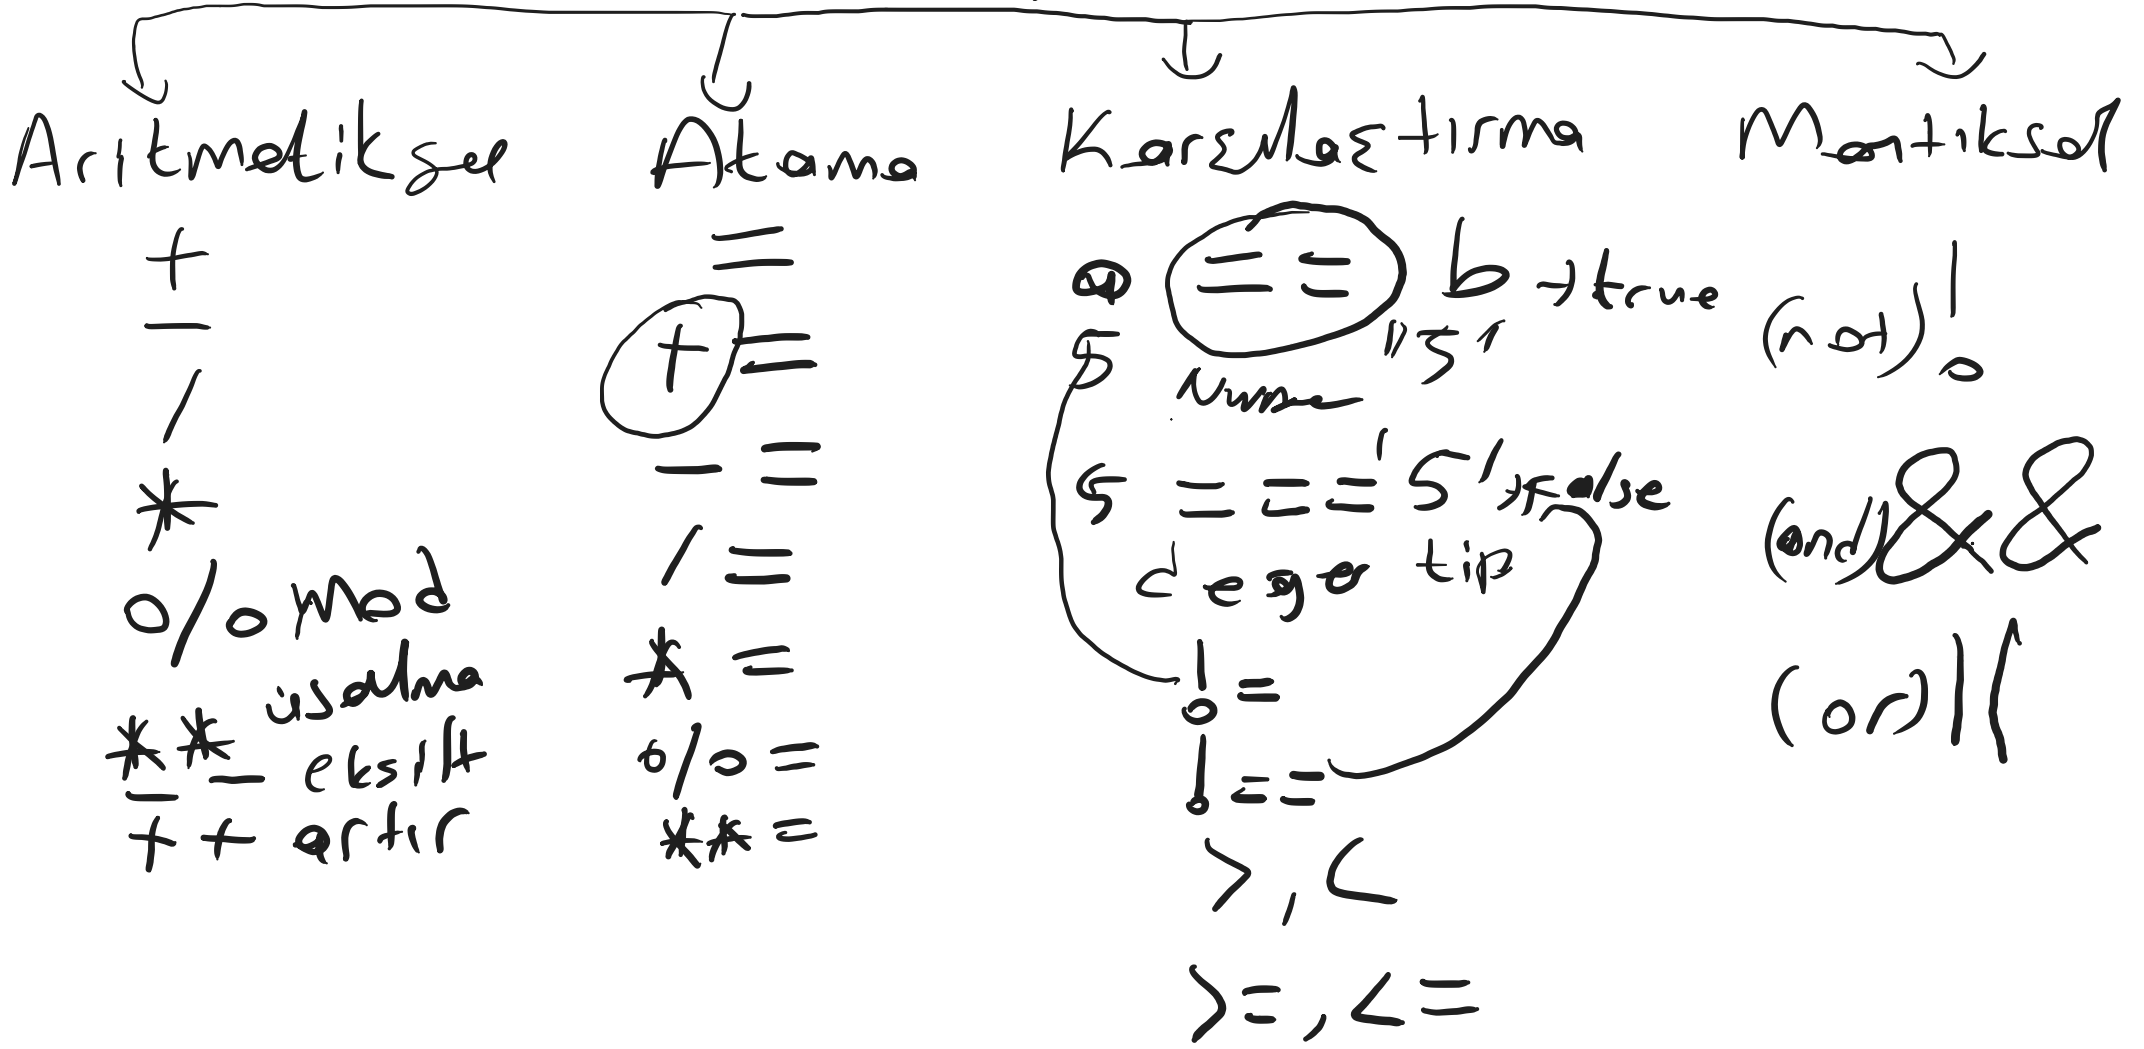 Aritmetiksel
+
-
/
*
% Mod
** üsalma
-- eksilt
++ artir
Atama
=
+=
-=
/=
*=
%=
**=
Karsılastirma
a == b → true
5 "5"
5 === '5' → false
deger tip
!=
!==
>, <
>=, <=
Mantiksal
(not) !
(and) &&
(or) ||